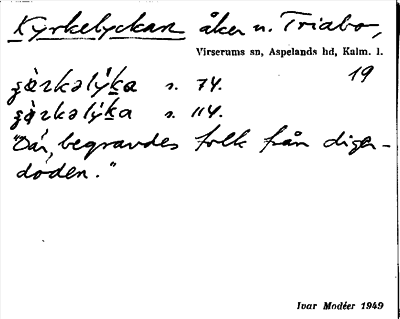 Kyrkelyckan åker u. Triabo,
Virserums sn, Aspelands hd, Kalm. l.
19
s. 74.
s. 114.
"Där begravdes folk från diger-
döden."
Ivar Modéer 1949